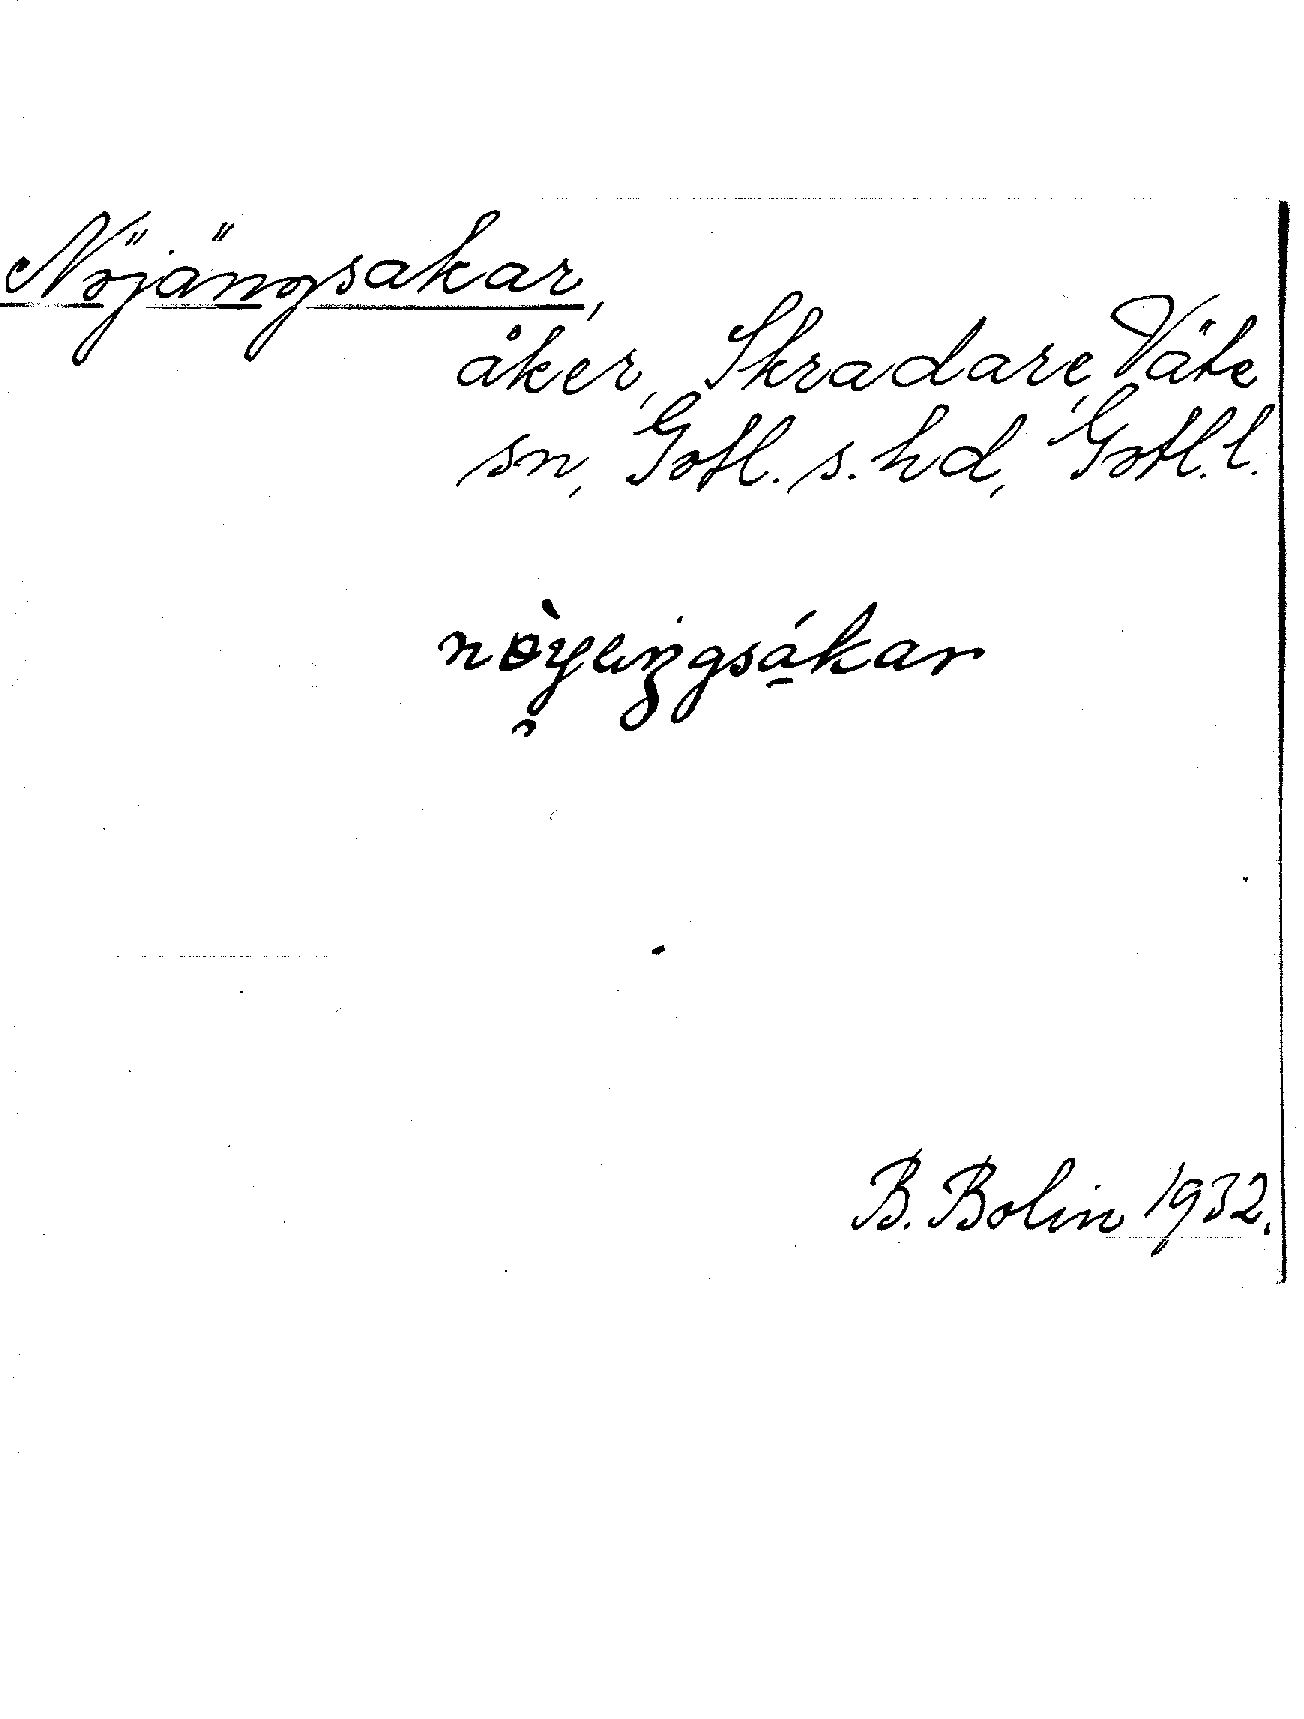 Nöjängsakar,
åker, Skradare, Väte
sn, Gotl. s. hd, Gotl. l.
B. Bolin 1932.